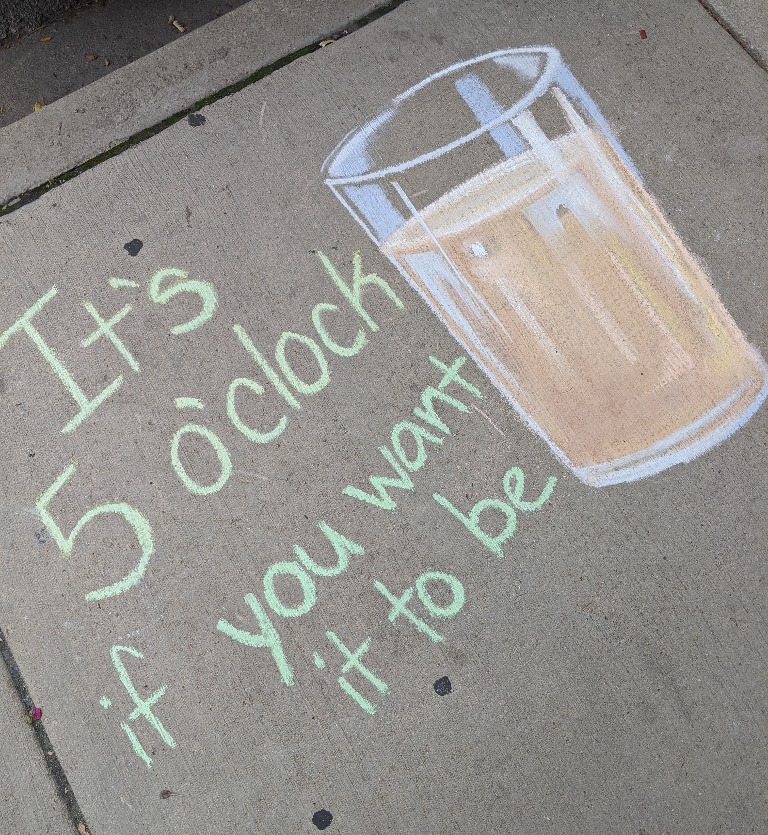 It's
5 o'clock
if you want
it to be